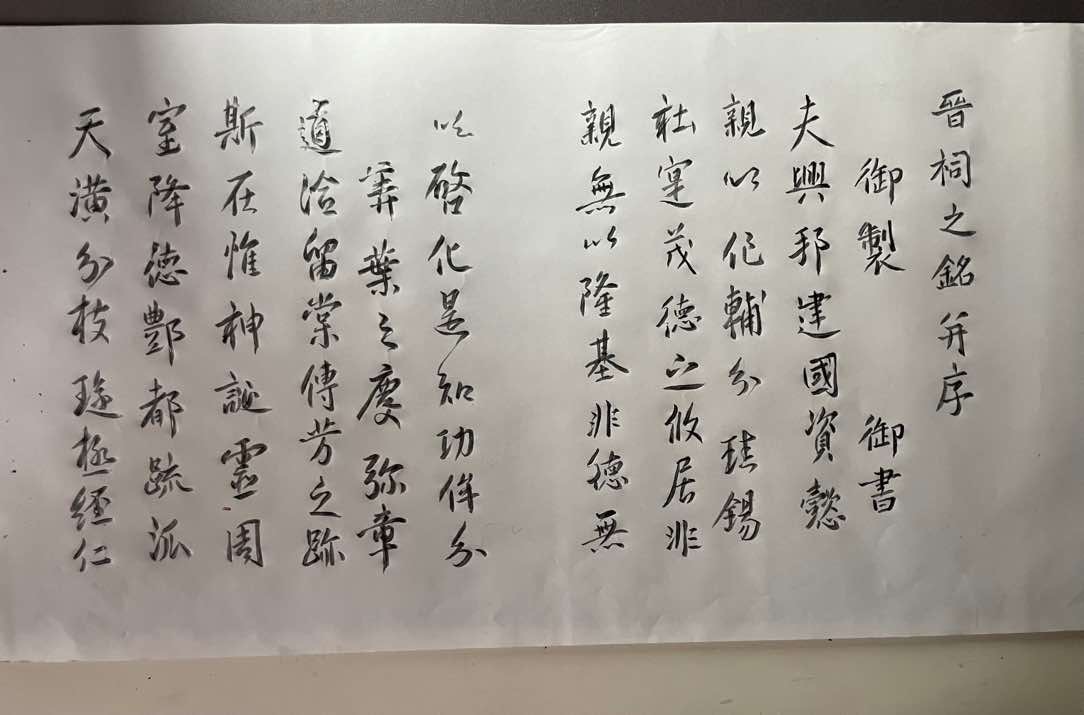 晉祠之銘并序
御製 御書
夫興邦建國資懿
親以作輔分珪錫
社寔茂德之攸居非
親無以隆基非德無
以啓化是知功侔分
奕葉之慶弥章
道洽留棠傳芳之跡
斯在惟神誕靈周
室降德酆都疏派
天潢分枝琁極經仁